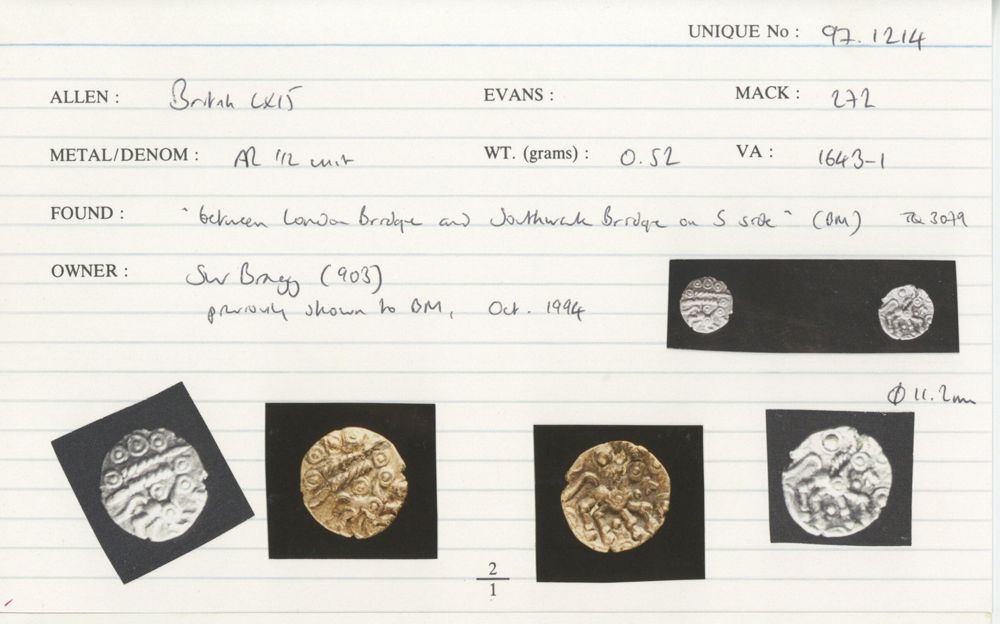 UNIQUE No : 97.1214
ALLEN : British LX15 EVANS : MACK : 272
METAL/DENOM : AR 1/2 unit WT. (grams) : 0.52 VA : 1643-1
FOUND : "between London Bridge and Southwark Bridge on S side" (BM) TQ 3079
OWNER : Bragg (903)
previously shown to BM, Oct. 1994
Φ 11.2mm
2
1